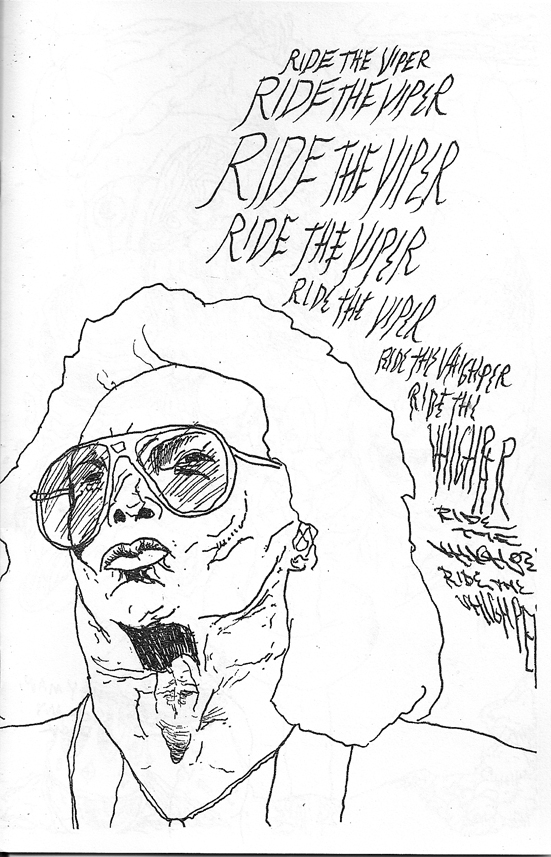 RIDE THE VIPER
RIDE THE VIPER
RIDE THE VIPER
RIDE THE VIPER
RIDE THE VIPER
RIDE THE VAHIGHPER
RIDE THE
VAHIGHPER
RIDE
THE
RIDE THE